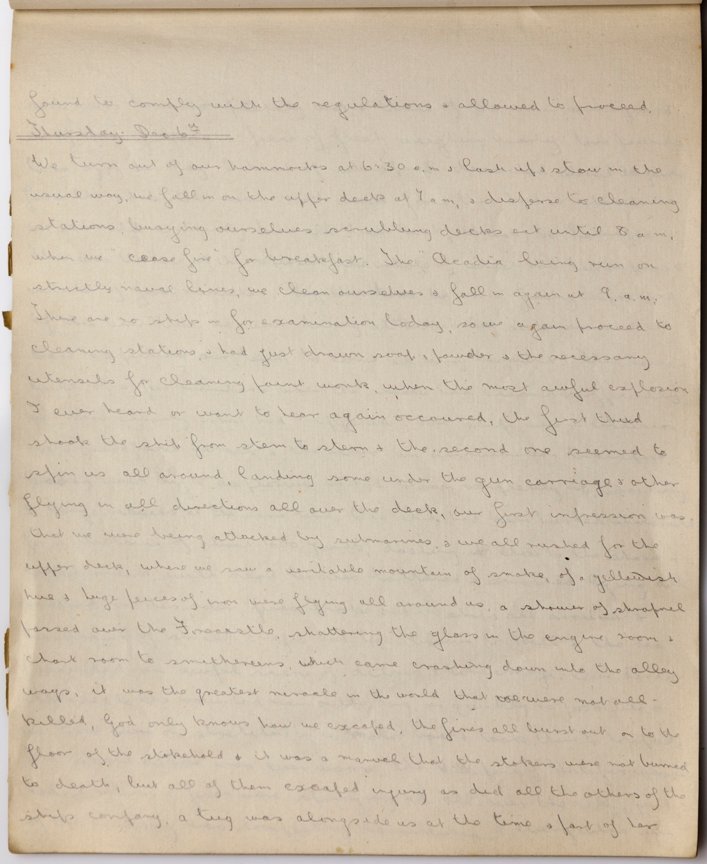 found to comply with the regulations & allowed to proceed.
Thursday. Dec 6th.
We turn out of our hammocks at 6.30 a.m & lash up & stow in the
usual way, we fall in on the upper deck at 7 a m, & disperse to cleaning
stations, busying ourselves scrubbing decks ect until 8 a m,
when we "cease fire" for breakfast. The "Acadia being run on
strictly naval lines, we clean ourselves & fall in again at 9. a.m;
There are no ships in for examination today, so we again proceed to
cleaning stations, & had just drawn soap & powder & the necessary
utensils for cleaning paint work, when the most awful explosion
I ever heard or want to hear again occoured, the first thud
shook the ship from stem to stern & the second one seemed to
spin us all around, landing some under the gun carriage & other
flying in all directions all over the deck, our first impression was
that we were being attacked by submarines, & we all rushed for the
upper deck, where we saw a veritable mountain of smoke, of a yellowish
hue & huge peices of iron were flying all around us, a shower of shrapnel
passed over the Forecastle, shattering the glass in the engine room &
chart room to smithereens, which came crashing down into the alley
ways, it was the greatest miracle in the world that we were not all
killed, God only knows how we excaped, the fires all burst out on to the
floor of the stokehold & it was a marvel that the stokers were not burned
to death, but all of them excaped injury as did all the others of the
ships company. a tug was alongside us at the time & part of her